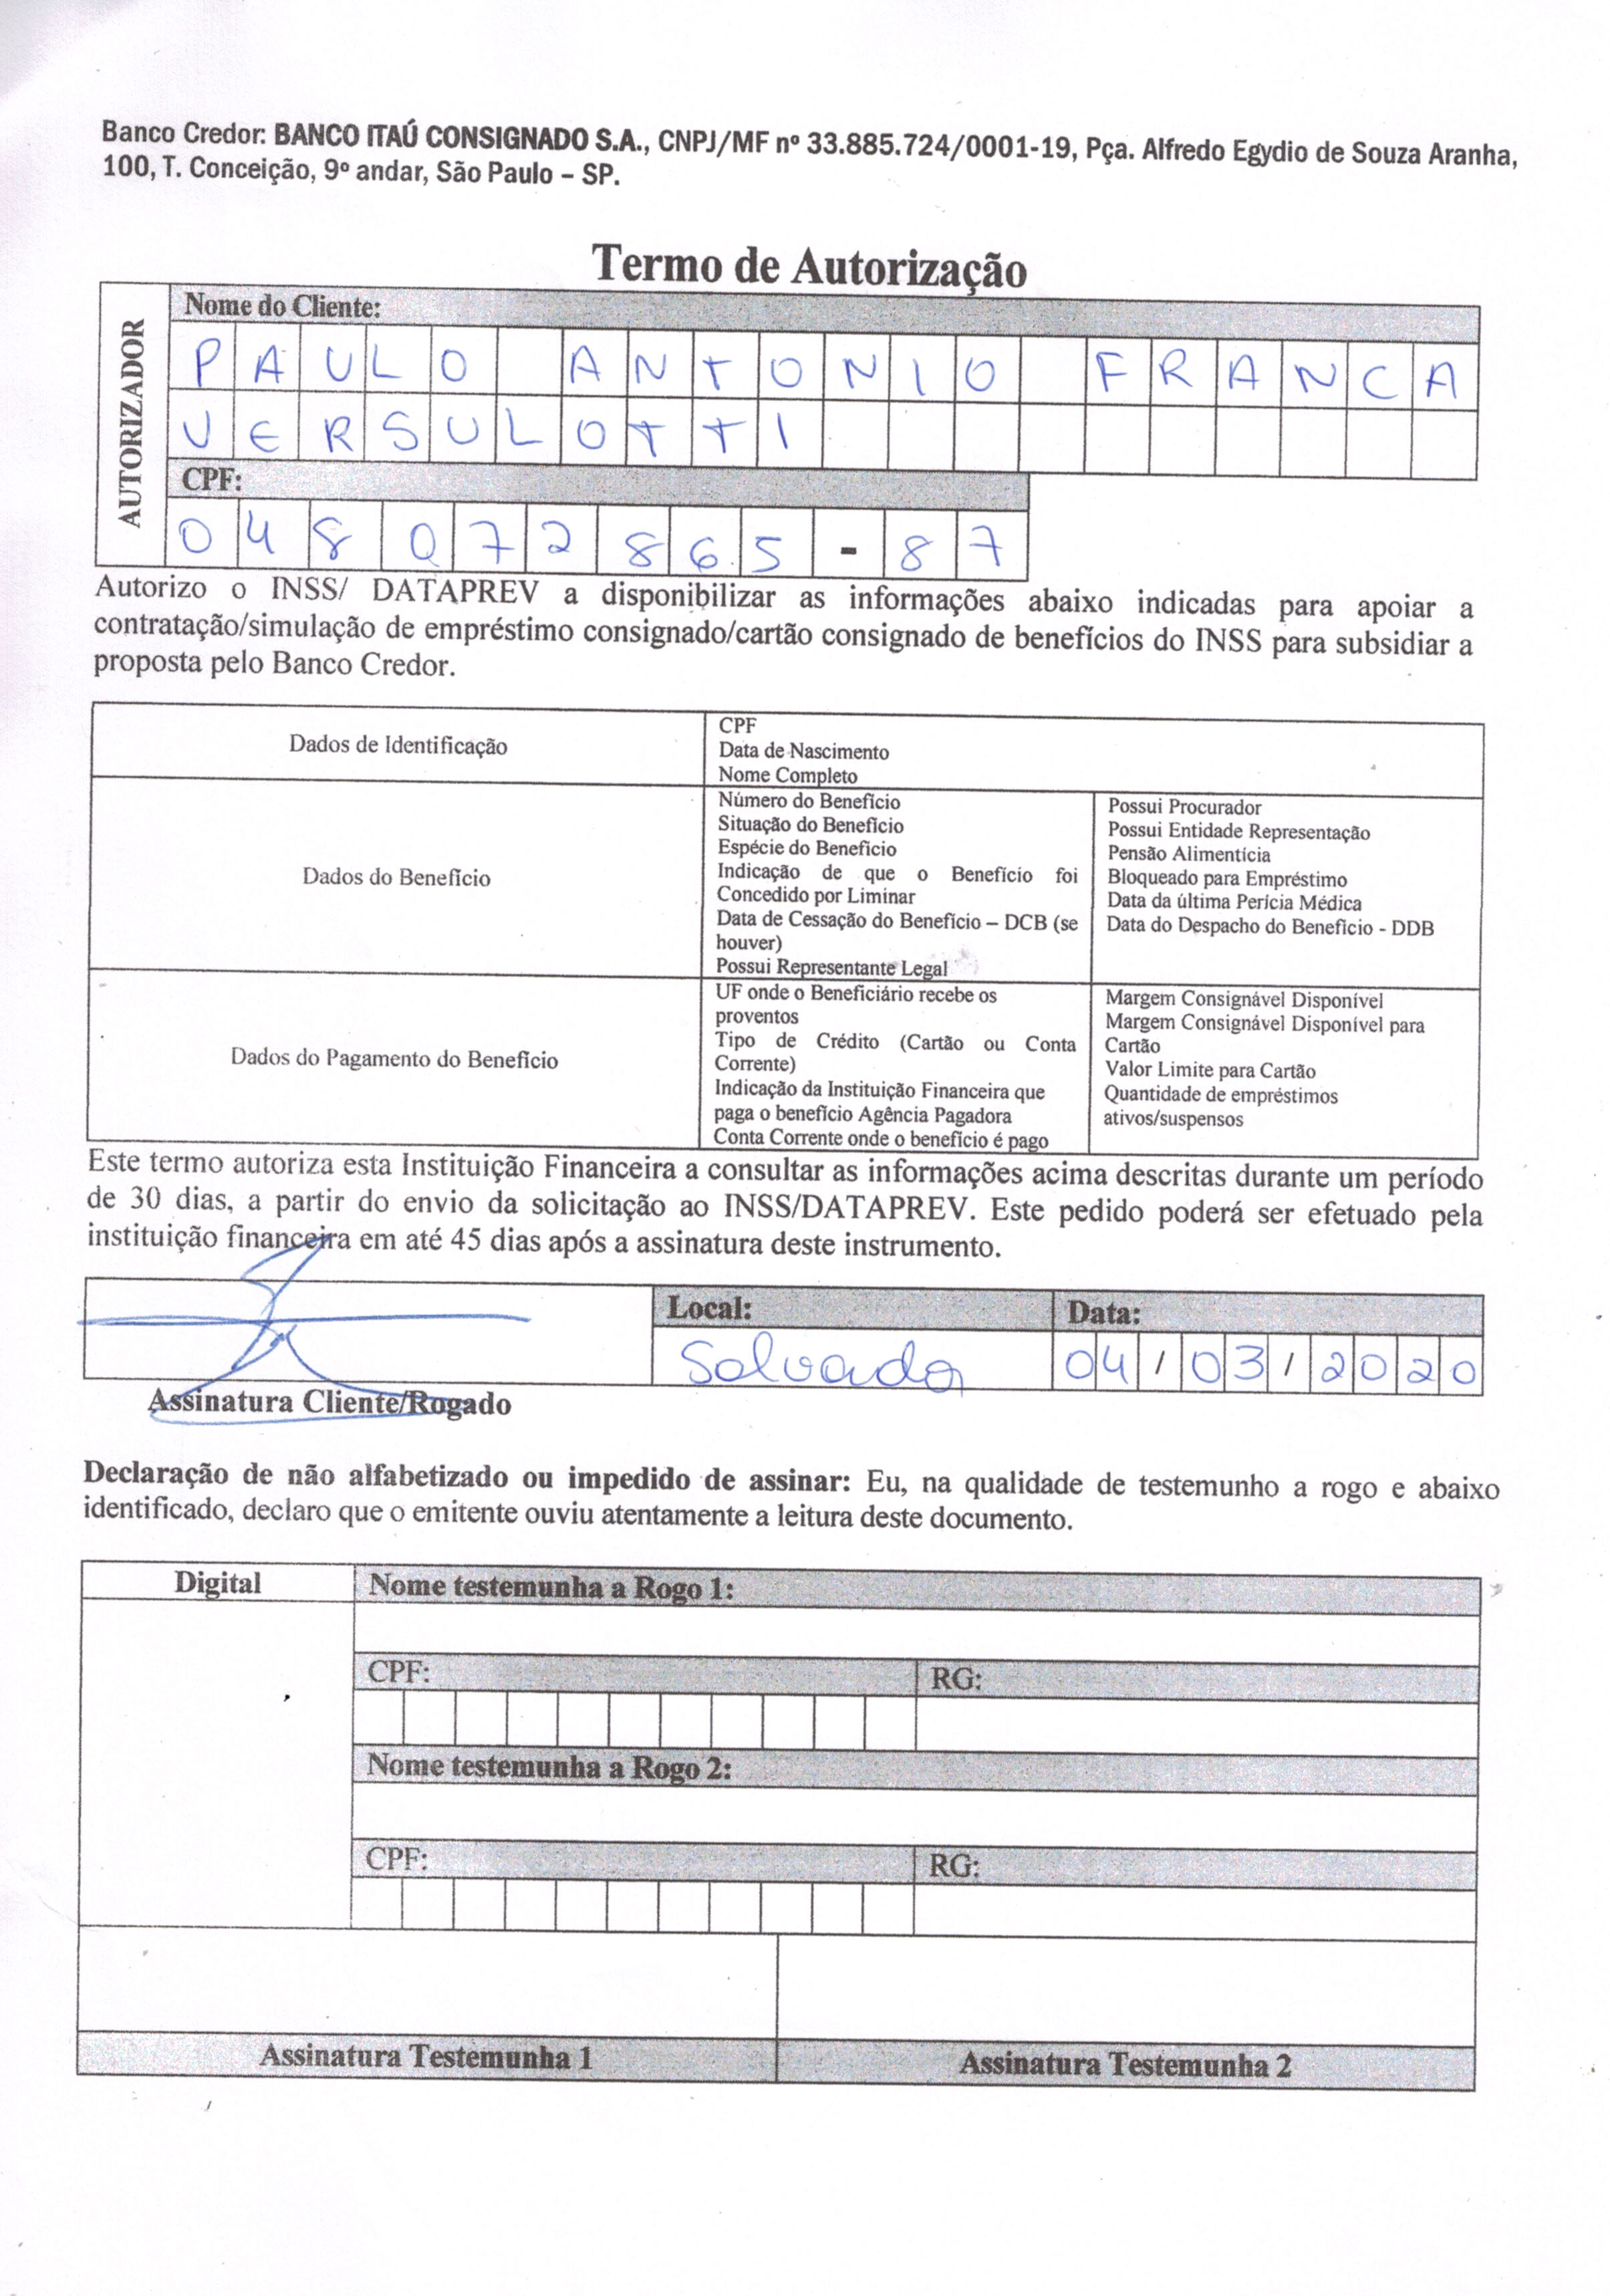 Banco Credor: BANCO ITAÚ CONSIGNADO S.A., CNPJ/MF nº 33.885.724/0001-19, Pça. Alfredo Egydio de Souza Aranha,
100, T. Conceição, 9º andar, São Paulo – SP.
Termo de Autorização
AUTORIZADOR
Nome do Cliente:
PAULO ANTONIO FRANCA
VERSULOTTI
CPF:
048072865-87
Autorizo o INSS/ DATAPREV a disponibilizar as informações abaixo indicadas para apoiar a
contratação/simulação de empréstimo consignado/cartão consignado de benefícios do INSS para subsidiar a
proposta pelo Banco Credor.
Dados de Identificação
CPF
Data de Nascimento
Nome Completo
Dados do Benefício
Número do Benefício
Situação do Benefício
Espécie do Benefício
Indicação de que o Benefício foi
Concedido por Liminar
Data de Cessação do Benefício – DCB (se
houver)
Possui Representante Legal
Possui Procurador
Possui Entidade Representação
Pensão Alimentícia
Bloqueado para Empréstimo
Data da última Perícia Médica
Data do Despacho do Benefício - DDB
Dados do Pagamento do Benefício
UF onde o Beneficiário recebe os
proventos
Tipo de Crédito (Cartão ou Conta
Corrente)
Indicação da Instituição Financeira que
paga o benefício Agência Pagadora
Conta Corrente onde o benefício é pago
Margem Consignável Disponível
Margem Consignável Disponível para
Cartão
Valor Limite para Cartão
Quantidade de empréstimos
ativos/suspensos
Este termo autoriza esta Instituição Financeira a consultar as informações acima descritas durante um período
de 30 dias, a partir do envio da solicitação ao INSS/DATAPREV. Este pedido poderá ser efetuado pela
instituição financeira em até 45 dias após a assinatura deste instrumento.
Local:
Data:
Salvador
04/03/2020
Assinatura Cliente/Rogado
Declaração de não alfabetizado ou impedido de assinar: Eu, na qualidade de testemunho a rogo e abaixo
identificado, declaro que o emitente ouviu atentamente a leitura deste documento.
Digital
Nome testemunha a Rogo 1:
CPF:
RG:
Nome testemunha a Rogo 2:
CPF:
RG:
Assinatura Testemunha 1
Assinatura Testemunha 2